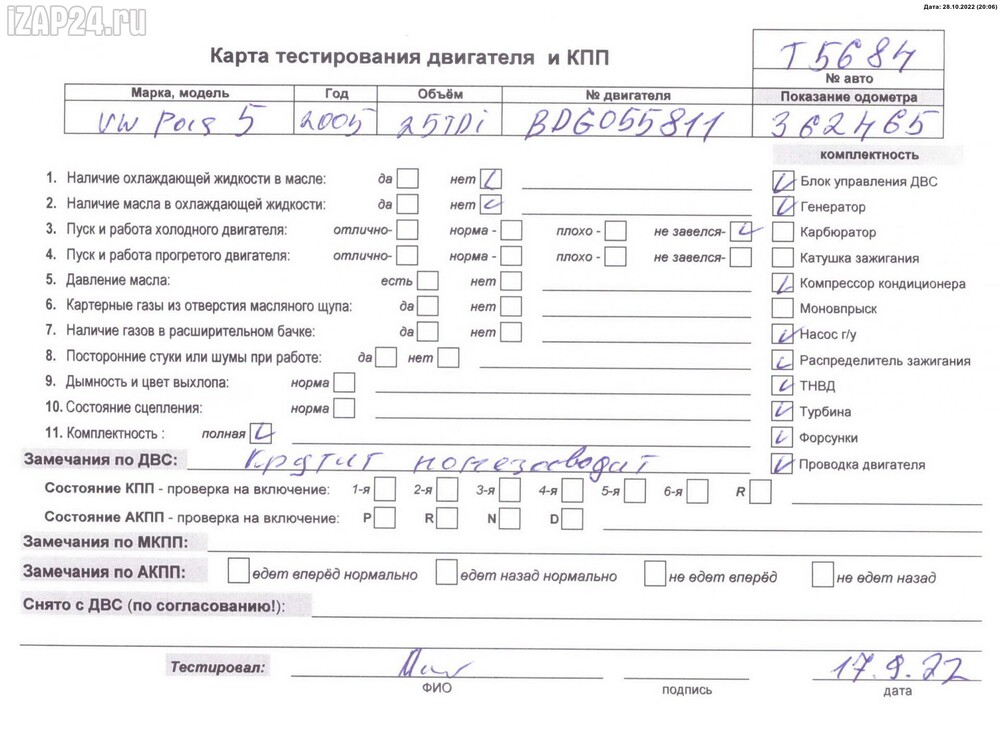 iZAP24.ru
Дата: 28.10.2022 (20:06)
Карта тестирования двигателя и КПП
T5684
№ авто
Марка, модель Год Объём № двигателя Показание одометра
VW Pas 5 2005 25TDi BDG055811 362465
комплектность
1. Наличие охлаждающей жидкости в масле: да нет
Блок управления ДВС
2. Наличие масла в охлаждающей жидкости: да нет
Генератор
3. Пуск и работа холодного двигателя: отлично- норма - плохо - не завелся-
Карбюратор
4. Пуск и работа прогретого двигателя: отлично- норма - плохо - не завелся-
Катушка зажигания
5. Давление масла: есть нет
Компрессор кондиционера
6. Картерные газы из отверстия масляного щупа: да нет
Моновпрыск
7. Наличие газов в расширительном бачке: да нет
Насос г/у
8. Посторонние стуки или шумы при работе: да нет
Распределитель зажигания
9. Дымность и цвет выхлопа: норма
ТНВД
10. Состояние сцепления: норма
Турбина
11. Комплектность : полная
Форсунки
Замечания по ДВС: крутит
Проводка двигателя
Состояние КПП - проверка на включение: 1-я 2-я 3-я 4-я 5-я 6-я R
Состояние АКПП - проверка на включение: P R N D
Замечания по МКПП:
Замечания по АКПП: едет вперёд нормально едет назад нормально не едет вперёд не едет назад
Снято с ДВС (по согласованию!):
Тестировал: 17.9.22
ФИО подпись дата